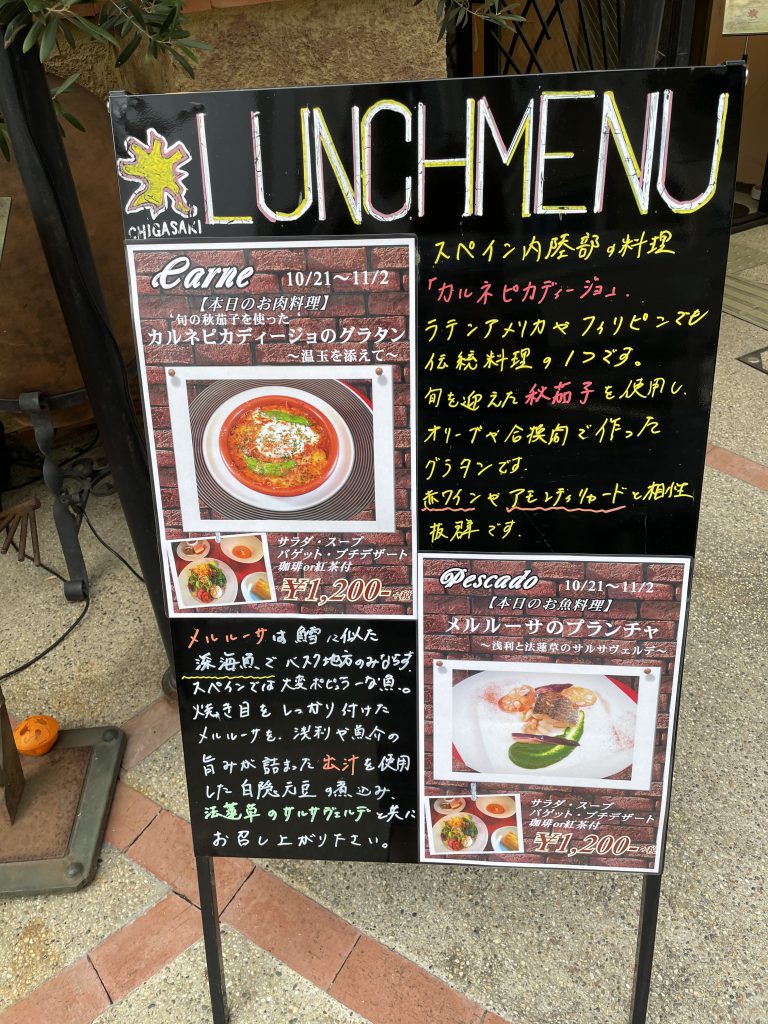 LUNCH MENU
CHIGASAKI
Carne 10/21～11/2
【本日のお肉料理】
"旬の秋茄子を使った"
カルネピカディージョのグラタン
～温玉を添えて～
サラダ・スープ
バゲット・プチデザート
珈琲or紅茶付
¥1,200-+税
スペイン内陸部の料理
「カルネピカディージョ」.
ラテンアメリカやフィリピンでも
伝統料理の1つです。
旬を迎えた秋茄子を使用し、
オリーブや合挽肉で作った
グラタンです.
赤ワインやアモンティリャードと相性
抜群です.
メルルーサは鱈に似た
深海魚でバスク地方のみならず、
スペインでは大変ポピュラーな魚。
焼き目をしっかり付けた
メルルーサを、浅利や魚介の
旨みが詰まった出汁を使用
した白隠元豆の煮込み、
法蓮草のサルサヴェルデと共に
お召し上がり下さい。
Pescado 10/21～11/2
【本日のお魚料理】
メルルーサのプランチャ
～浅利と法蓮草のサルサヴェルデ～
サラダ・スープ
バゲット・プチデザート
珈琲or紅茶付
¥1,200-+税